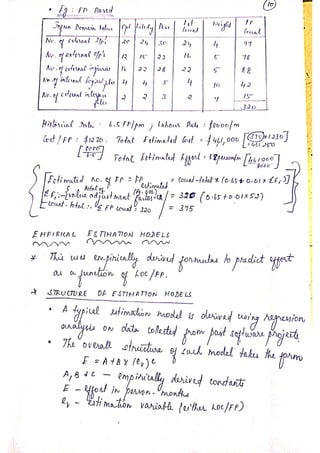 10
• Eg : FP Based
Inform Domain Value | Opt | Likely | Pess | Est Count | Weight | FP Count
No. of external I/p's 20 24 30 24 4 97
No. of external o/p's 12 15 22 16 5 78
No. of external inquiries 16 22 28 22 5 88
No. of internal logical files 4 4 5 4 10 42
No. of external interface files 2 2 3 2 7 15
320
Historical Data : 6.5 FP/pm ; Labour Rate : $8000/m
Cost/FP : $1230. Total Estimated Cost : $461,000 [375×1230 = 461250]
[8000/6.5] Total Estimated Effort : 58 person/m [461000/8000]
Estimated no. of FP = FP estimated = count-total x (0.65 + 0.01 x Σ Fi)
Σ Fi :- total of value adjustment factors = 52 = 320 (0.65 + 0.01×52)
count-total :- Σ FP count = 320 = 375
EMPIRICAL ESTIMATION MODELS
* This uses empirically derived formulas to predict effort
as a function of LOC/FP.
* STRUCTURE OF ESTIMATION MODELS
• A typical estimation model is derived using regression
analysis on data collected from past software projects.
• The overall structure of such model takes the form
E = A + B x (ev)C
A, B & C — empirically derived constants
E — effort in person-months
ev — Estimation variable (either LOC/FP)